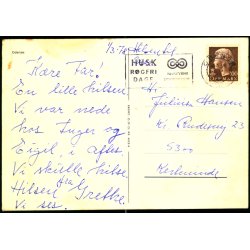 Kære Far!
En lille hilsen
Vi var nede
hos Inger og
Eigil i aftes
Vi skulle hilse
Hilsen fra Grethe
Vi ses.
HUSK
RØGFRI
DAGE
DANMARK
Hr
Julius Hansen
Kr.
5300
Kerteminde